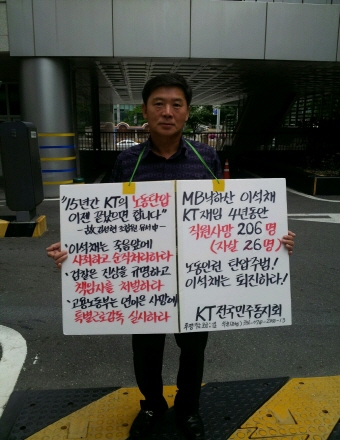 "15년간 KT의 노동탄압
이젠 끝났으면 합니다"
- 故 김성현 조합원 유서 中 -
· 이석채는 죽음앞에
사죄하고 순직처리하라
· 검찰은 진상을 규명하고
책임자를 처벌하라
· 고용노동부는 연이은 사망에
특별근로감독 실시하라
MB낙하산 이석채
KT 재임 4년동안
직원사망 206명
(자살 26명)
노동인권 탄압주범!
이석채는 퇴진하라!
KT전국민주동지회